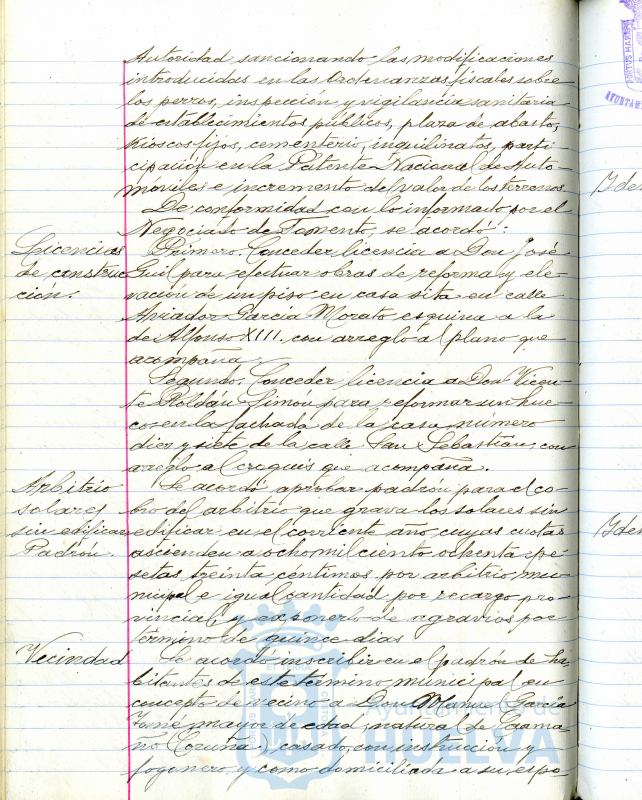 Autoridad sancionando las modificaciones
introducidas en las Ordenanzas fiscales sobre
los perros, inspección y vigilancia sanitaria
de establecimientos públicos, plaza de abasto,
kioscos fijos, cementerio, inquilinatos, parti-
cipación en la Patente Nacional de Auto-
moviles e incremento del valor de los terrenos.
De conformidad con lo informado por el
Negociado de Fomento, se acordó:
Licencias
de construc
ción.
Primero. Conceder licencia a Don José
Guil para efectuar obras de reforma y ele-
vación de un piso en casa sita en calle
Aviador García Morato esquina a la
de Alfonso XIII. con arreglo al plano que
acompaña.
Segundo. Conceder licencia a Don Vicen-
te Roldán Simón para reformar un hue-
co en la fachada de la casa número
diez y siete de la calle San Sebastián, con
arreglo al croquis que acompaña.
Arbitrio
solares
sin edificar
Padrón.
Se acordó aprobar padrón para el co-
bro del arbitrio que grava los solares sin
edificar en el corriente año, cuyas cuotas
ascienden a ocho mil ciento ochenta pe-
setas treinta céntimos por arbitrio mu-
nicipal e igual cantidad por recargo pro-
vincial, y exponerlo de agravios por
termino de quince dias
Vecindad
Se acordó inscribir en el padrón de ha-
bitantes de este termino municipal en
concepto de vecino a Don Manuel García
Tomé, mayor de edad, natural de
(Coruña), casado, con instrucción y
fogonero, y como domiciliada a su espo-
Ayuntamiento de
HUELVA